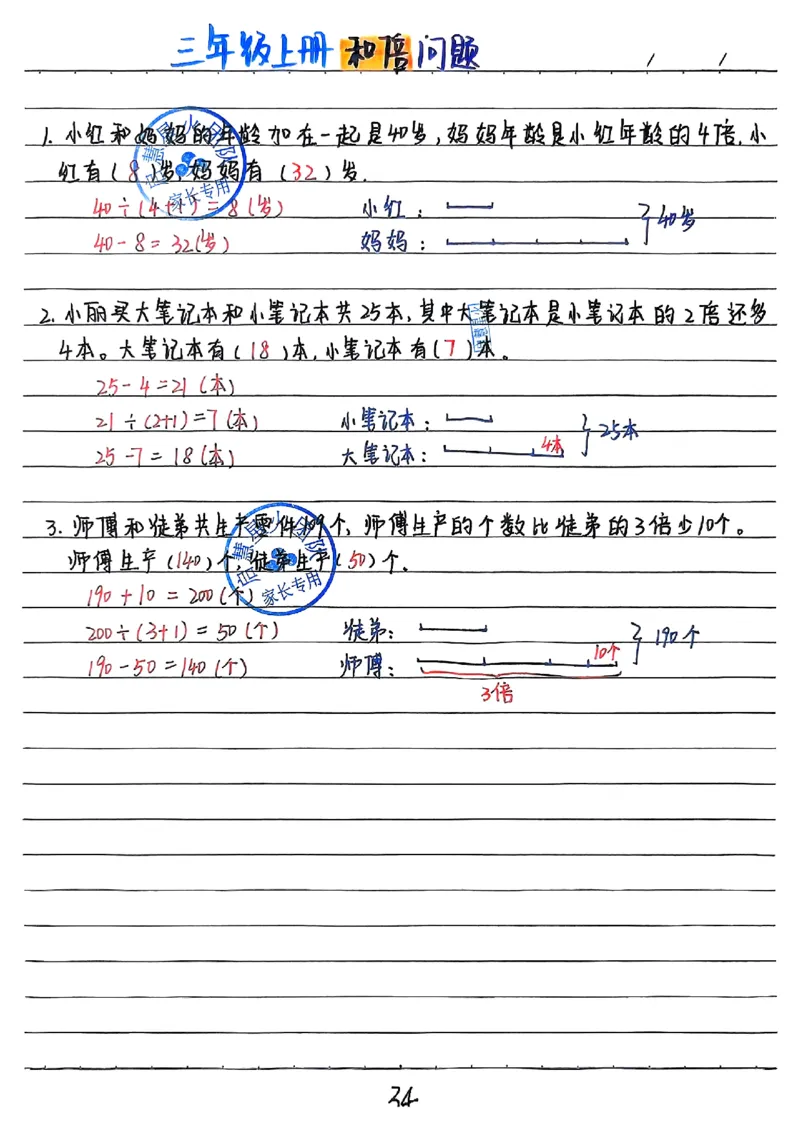 三年级上册 和倍问题
/ /
1. 小红和妈妈的年龄加在一起是40岁,妈妈年龄是小红年龄的4倍,小
红有(8)岁,妈妈有(32)岁.
40÷(4+1)=8(岁) 小红:
40岁
40-8=32(岁) 妈妈:
2. 小丽买大笔记本和小笔记本共25本,其中大笔记本是小笔记本的2倍还多
4本。大笔记本有(18)本,小笔记本有(7)本。
25-4=21(本)
21÷(2+1)=7(本) 小笔记本:
25本
25-7=18(本) 大笔记本: 4本
3. 师傅和徒弟共生产零件199个,师傅生产的个数比徒弟的3倍少10个。
师傅生产(140)个,徒弟生产(50)个.
190+10=200(个)
200÷(3+1)=50(个) 徒弟:
190个
190-50=140(个) 师傅: 10个
3倍
家长专用
家长专用
34